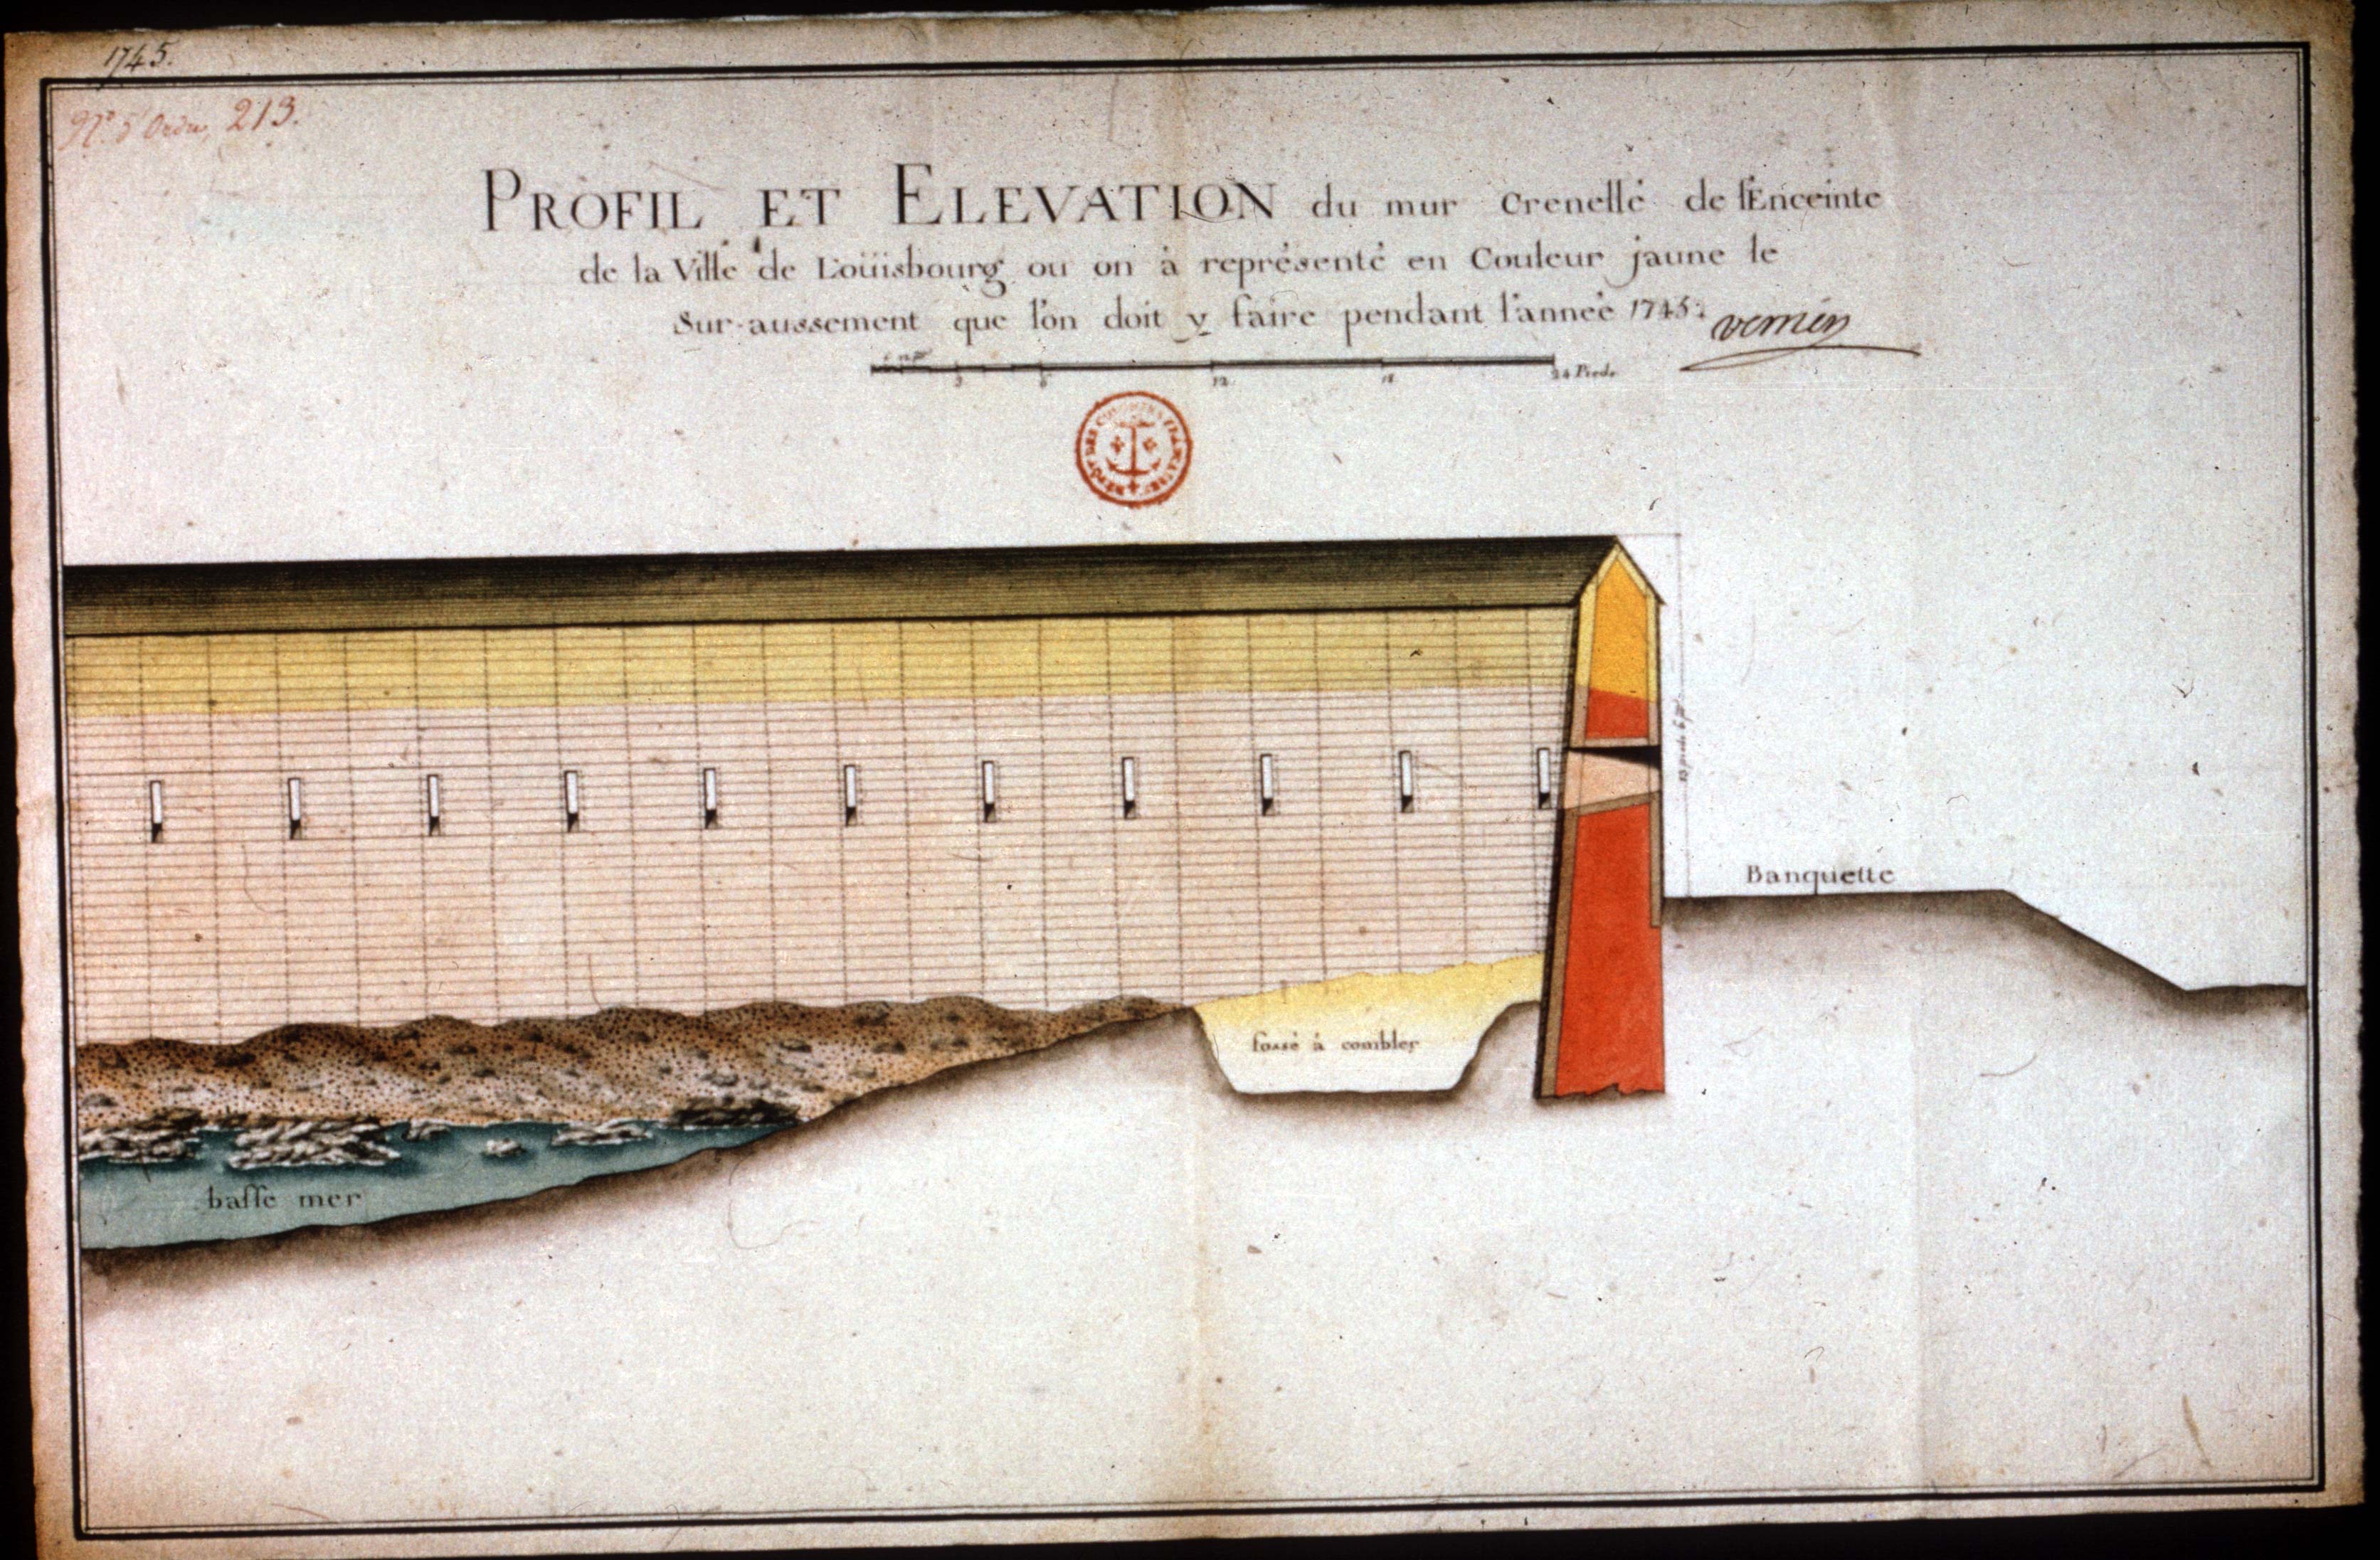 1745.
N.º 5 Ordre, 213.
PROFIL ET ELEVATION du mur crenellé de l'Enceinte
de la Ville de Loüisbourg ou on à représenté en Couleur jaune le
Sur-aussement que l'on doit y faire pendant l'année 1745.
verrier
3 6 12 18 24 Pieds
DÉPÔT DES COLONIES FRANÇAISES
Banquette
fossé à combler
basse mer